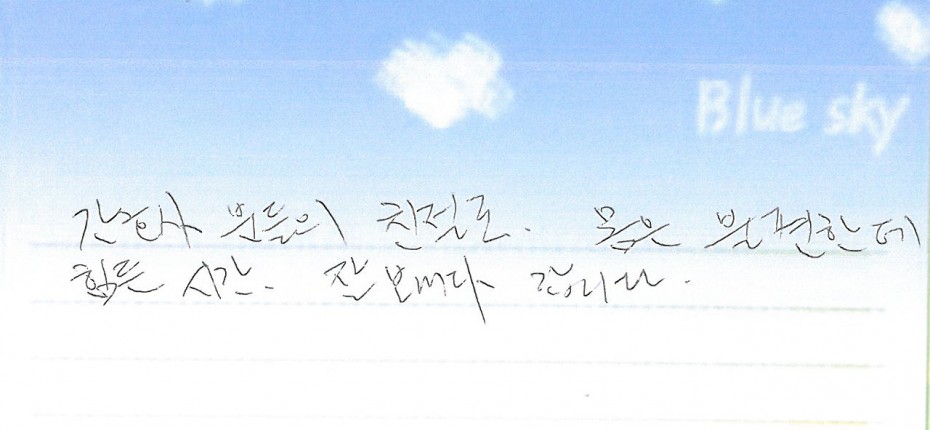 Blue sky
간호사 분들의 친절로. 몸은 불편한데
힘든 시간. 잘 보내다 갑니다.